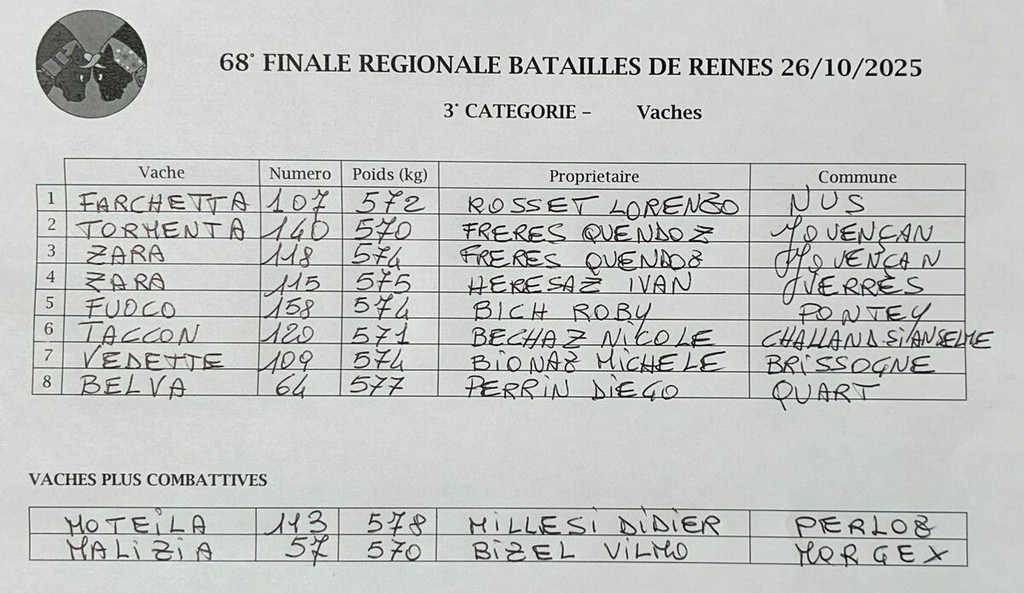 68° FINALE REGIONALE BATAILLES DE REINES 26/10/2025
3° CATEGORIE – Vaches
Vache Numero Poids (kg) Proprietaire Commune
1 FARCHETTA 107 572 ROSSET LORENZO NUS
2 TORMENTA 140 570 FRERES QUENDOZ JOVENÇAN
3 ZARA 118 574 FRERES QUENDOZ JOVENÇAN
4 ZARA 115 575 HERESAZ IVAN VERRÈS
5 FUOCO 158 574 BICH ROBY PONTEY
6 TACCON 120 571 BECHAZ NICOLE CHALLAND-ST-ANSELME
7 VEDETTE 109 574 BIONAZ MICHELE BRISSOGNE
8 BELVA 64 577 PERRIN DIEGO QUART
VACHES PLUS COMBATTIVES
MOTEILA 113 578 MILLESI DIDIER PERLOZ
MALIZIA 57 570 BIZEL VILMO MORGEX